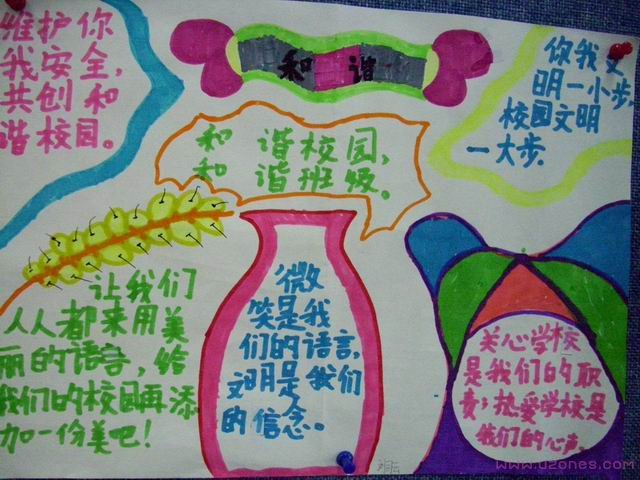 维护你
我安全，
共创和
谐校园。
和 谐
你我文
明一小步，
校园文明
一大步．
和谐校园，
和谐班级。
让我们
人人都来用美
丽的语言，给
我们的校园再添
加一份美吧！
微
笑是我
们的语言，
文明是我们
的信念。
关心学校
是我们的职
责；热爱学校是
我们的心声。
www.uzones.com